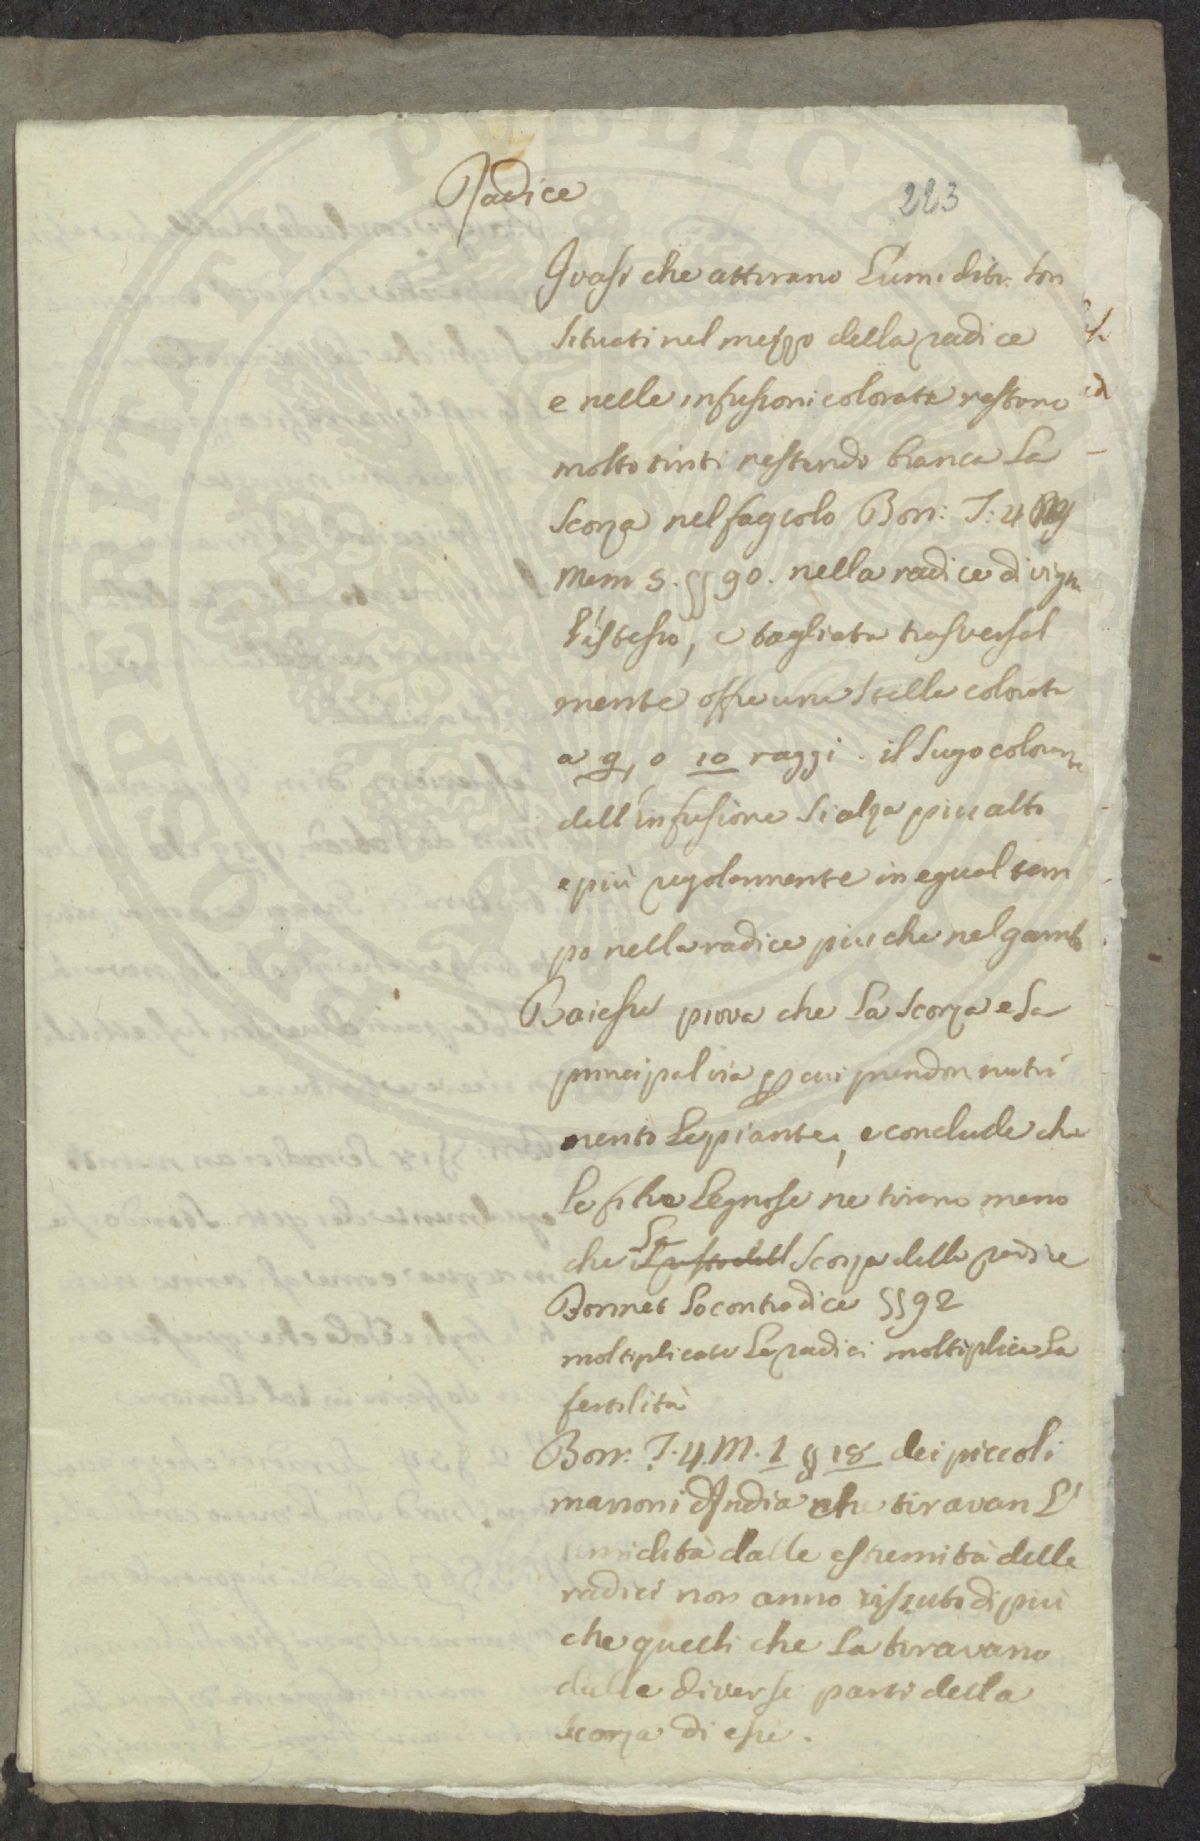 Radice
223
I vasi che attirano l'umidità son
situati nel mezzo della radice
e nelle infusioni colorate restano
molto tinti restando bianca la
scorza nel fagiolo Bon: T: 4
Mem 5. §§ 90. nella radice di vigna
l'istesso, e tagliata trasversal
mente offre una stella colorata
a 9, o 10 raggi. il sugo colorante
dell'infusione si alza più alto
e più regolarmente in egual tem
po nella radice più che nel gambo
Baiesse prova che la scorza e la
principal via p cui prendon nutri
mento le piante, e conclude che
le fibre legnose ne tirano meno
che la scorza delle radice
Bonnet lo contradice §§ 92
moltiplicate le radici moltiplica la
fertilità
Bon: T. 4. M. 1 § 18 dei piccoli
marroni d'India che tiravan l'
umidità dalle estremità delle
radici non anno vissuto di più
che quelli che la tiravano
dalle diverse parti della
scorza di esse.